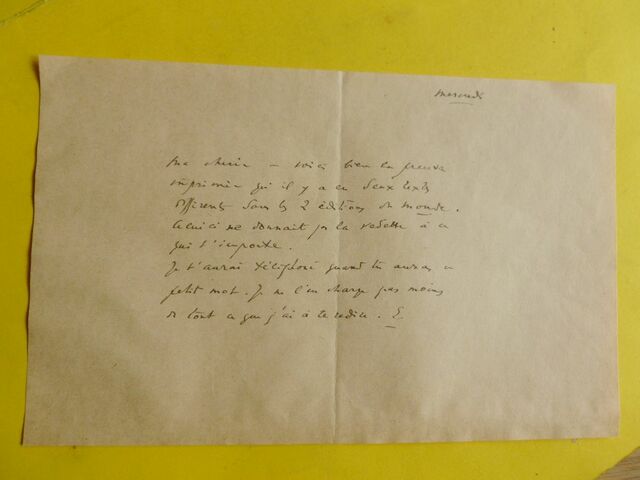 mercredi
Ma chérie – voici bien la preuve
imprimée qu'il y a eu deux textes
différents dans les 2 éditions du monde.
Celui ci ne donnait pas la vedette à ce
qui t'importe.
Je t'aurai téléphoné quand tu auras ce
petit mot. Je ne l'en charge pas moins
de tout ce que j'ai à te redire. E.